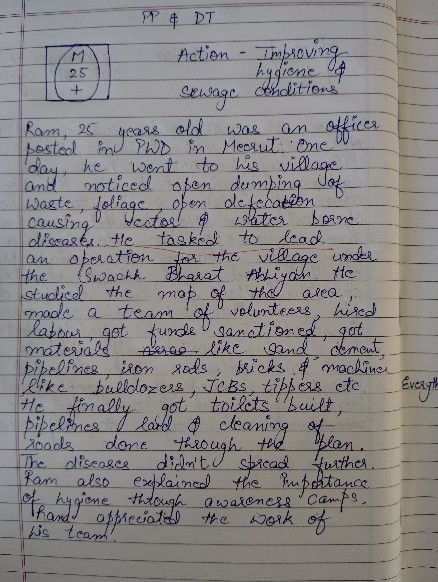 PP & DT
M
25
+
Action - Improving
hygiene &
sewage conditions
Ram, 25 years old was an officer
posted in PWD in Meerut. One
day, he went to his village
and noticed open dumping of
waste, foliage, open defecation
causing vector & water borne
diseases. He tasked to lead
an operation for the village under
the Swachh Bharat Abhiyan. He
studied the map of the area,
made a team of volunteers, hired
labour got funds sanctioned, got
materials like sand, cement,
pipelines iron rods, bricks & machines
like bulldozers, JCBs, tippers etc
He finally got toilets built,
pipelines laid & cleaning of
roads done through the plan.
The diseases didn't spread further.
Ram also explained the importance
of hygiene through awareness camps.
appreciated the work of
his team.